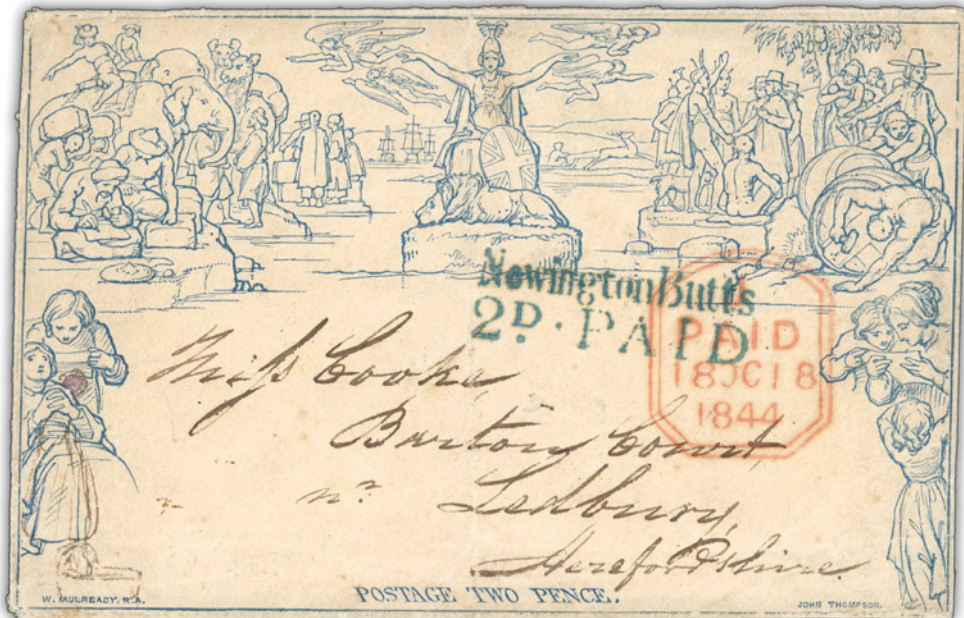 Newington Butts
2D. PAID
PAID
18 OC 18
1844
Miss Cooke,
Barton Court,
nr
Ledbury,
Herefordshire.
W. MULREADY, R.A.
POSTAGE TWO PENCE.
JOHN THOMPSON.